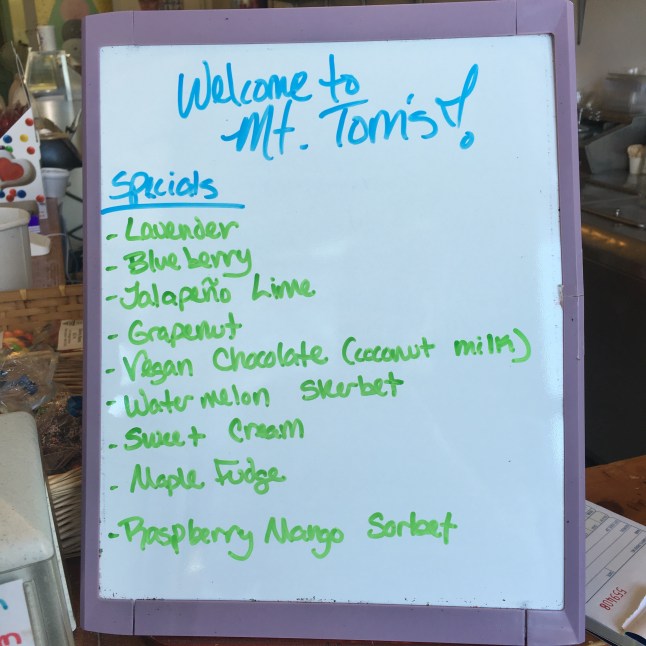 Welcome to
Mt. Tom's!
Specials
- Lavender
- Blueberry
- Jalapeño Lime
- Grapenut
- Vegan Chocolate (coconut milk)
- Watermelon Sherbet
- Sweet Cream
- Maple Fudge
- Raspberry Mango Sorbet